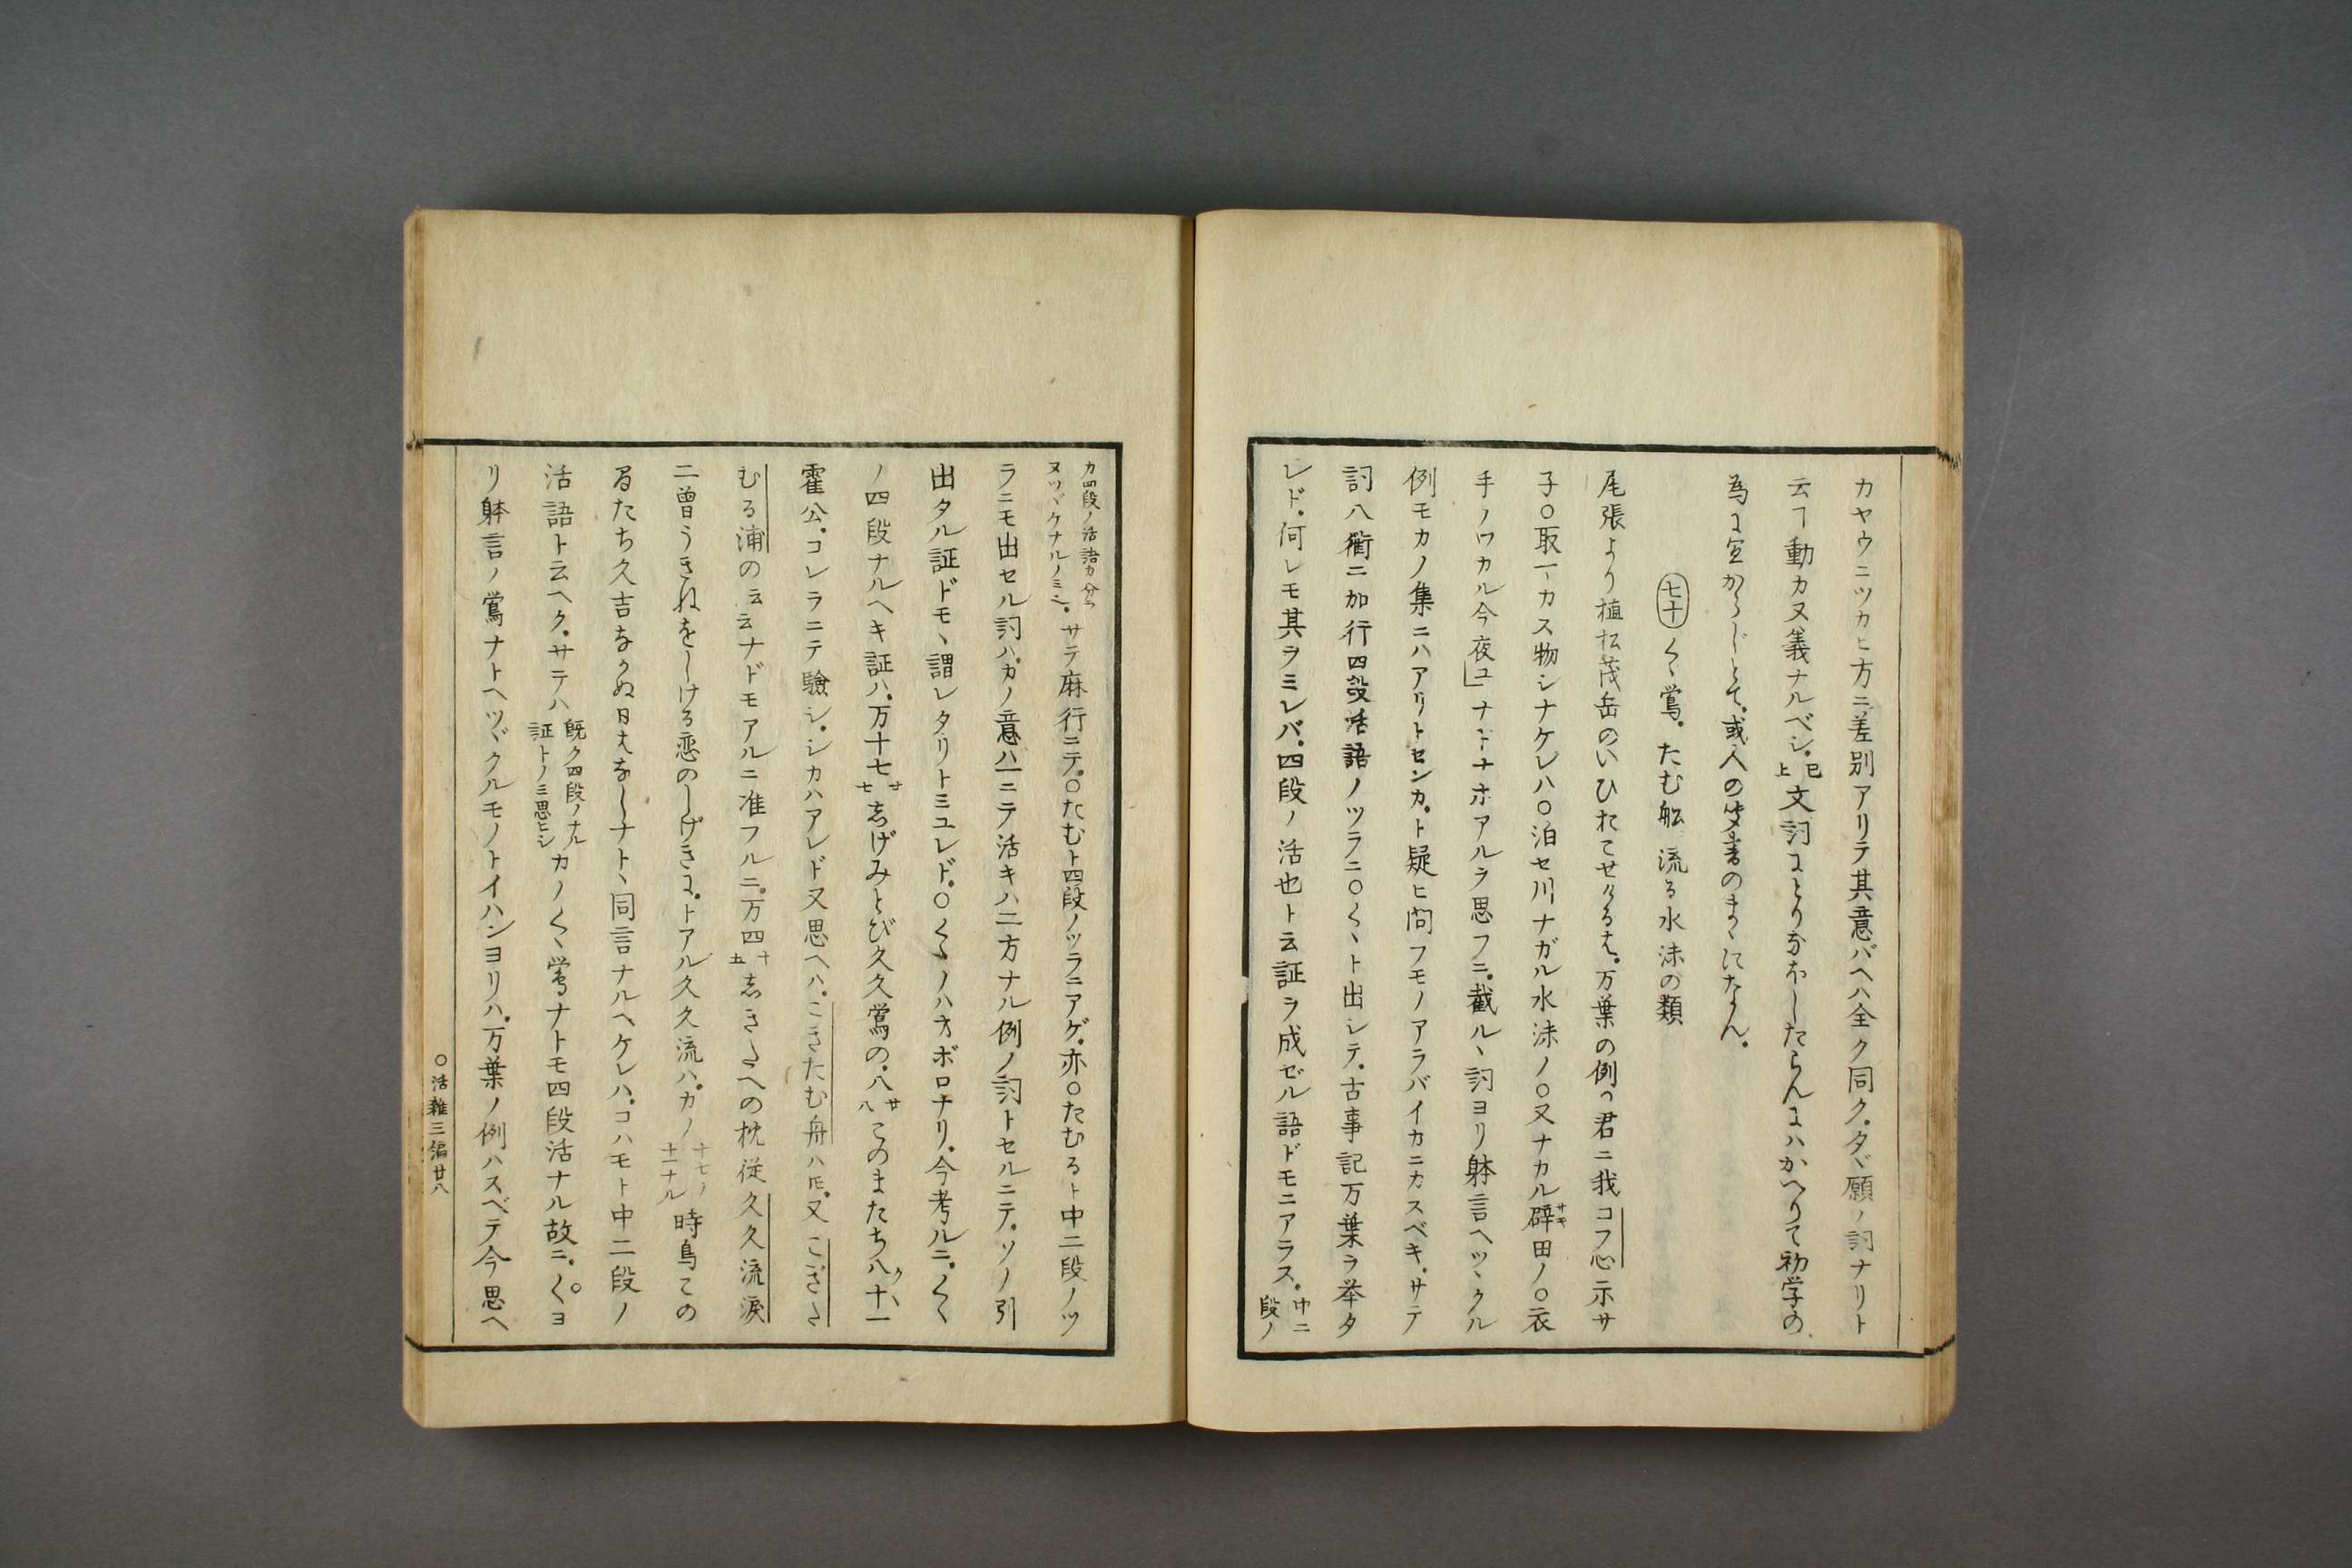 カヤウニツカヒ方ニ差別アリテ其意バヘハ全ク同ク、タヾ願ノ詞ナリト
云ヿ動カヌ義ナルベシ。已上 文詞にとりなほしたらんにハかへりて初学の
為に宜からじとて、或人の文書のまゝにたゝん。
七十 くゝ鴬。たむ舩 流る水沫の類
尾張より植松茂岳のいひおこせけるは。万葉の例ヲ君ニ我コフ心示サ
子〇取ーカス物シナケレハ〇泊セ川ナガル水沫ノ〇又ナカル辟田ノ〇衣
手ノワカル今夜ユ」ナドナホアルヲ思フニ。截ル、詞ヨリ躰言ヘツヾクル
例モカノ集ニハアリトセンカ。ト疑ヒ問フモノアラバイカニカスベキ。サテ
詞八衢ニ加行四段活語ノツラニ〇くゝト出シテ。古事記万葉ヲ挙タ
レド。何レモ其ヲミレバ。四段ノ活也ト云証ヲ成ゼル語ドモニアラス。中二段ノ
カ四段ノ活語カ分ラヌツヾケナルノミシ。サテ麻行ニテ。〇たむト四段ノツラニアゲ。亦〇たむるト中二段ノツ
ラニモ出セル詞ハ。カノ意ハ一ニテ活キハ二方ナル例ノ詞トセルニテ。ソノ引
出タル証ドモヽ謂レタリトミユレド。〇くゝノハオボロナリ。今考ルニ。くゝ
ノ四段ナルヘキ証ハ。万十七廿七 志げみとび久久鴬の。八廿八 このまたち八十一
霍公。コレラニテ験シ。シカハアレド又思ヘハ。こきたむ舟ハ𪜈。又こざた
むる浦の云云ナドモアルニ准フルニ。万四十五 志きたへの枕従久久流涙
二曽うきねをしける恋のしげきに。トアル久久流ハ。カノ十七ノ十一ナル 時鳥この
またち久吉なかぬ日はなしナトヽ同言ナルヘケレハ。コハモト中二段ノ
活語ト云ヘク。サテハ既ク四段ノナル証トノミ思ヒシカノくゝ鴬ナトモ四段活ナル故ニ。くヨ
リ躰言ノ鴬ナトヘツヾクルモノトイハンヨリハ。万葉ノ例ハスベテ今思ヘ
〇活雑三編廿八